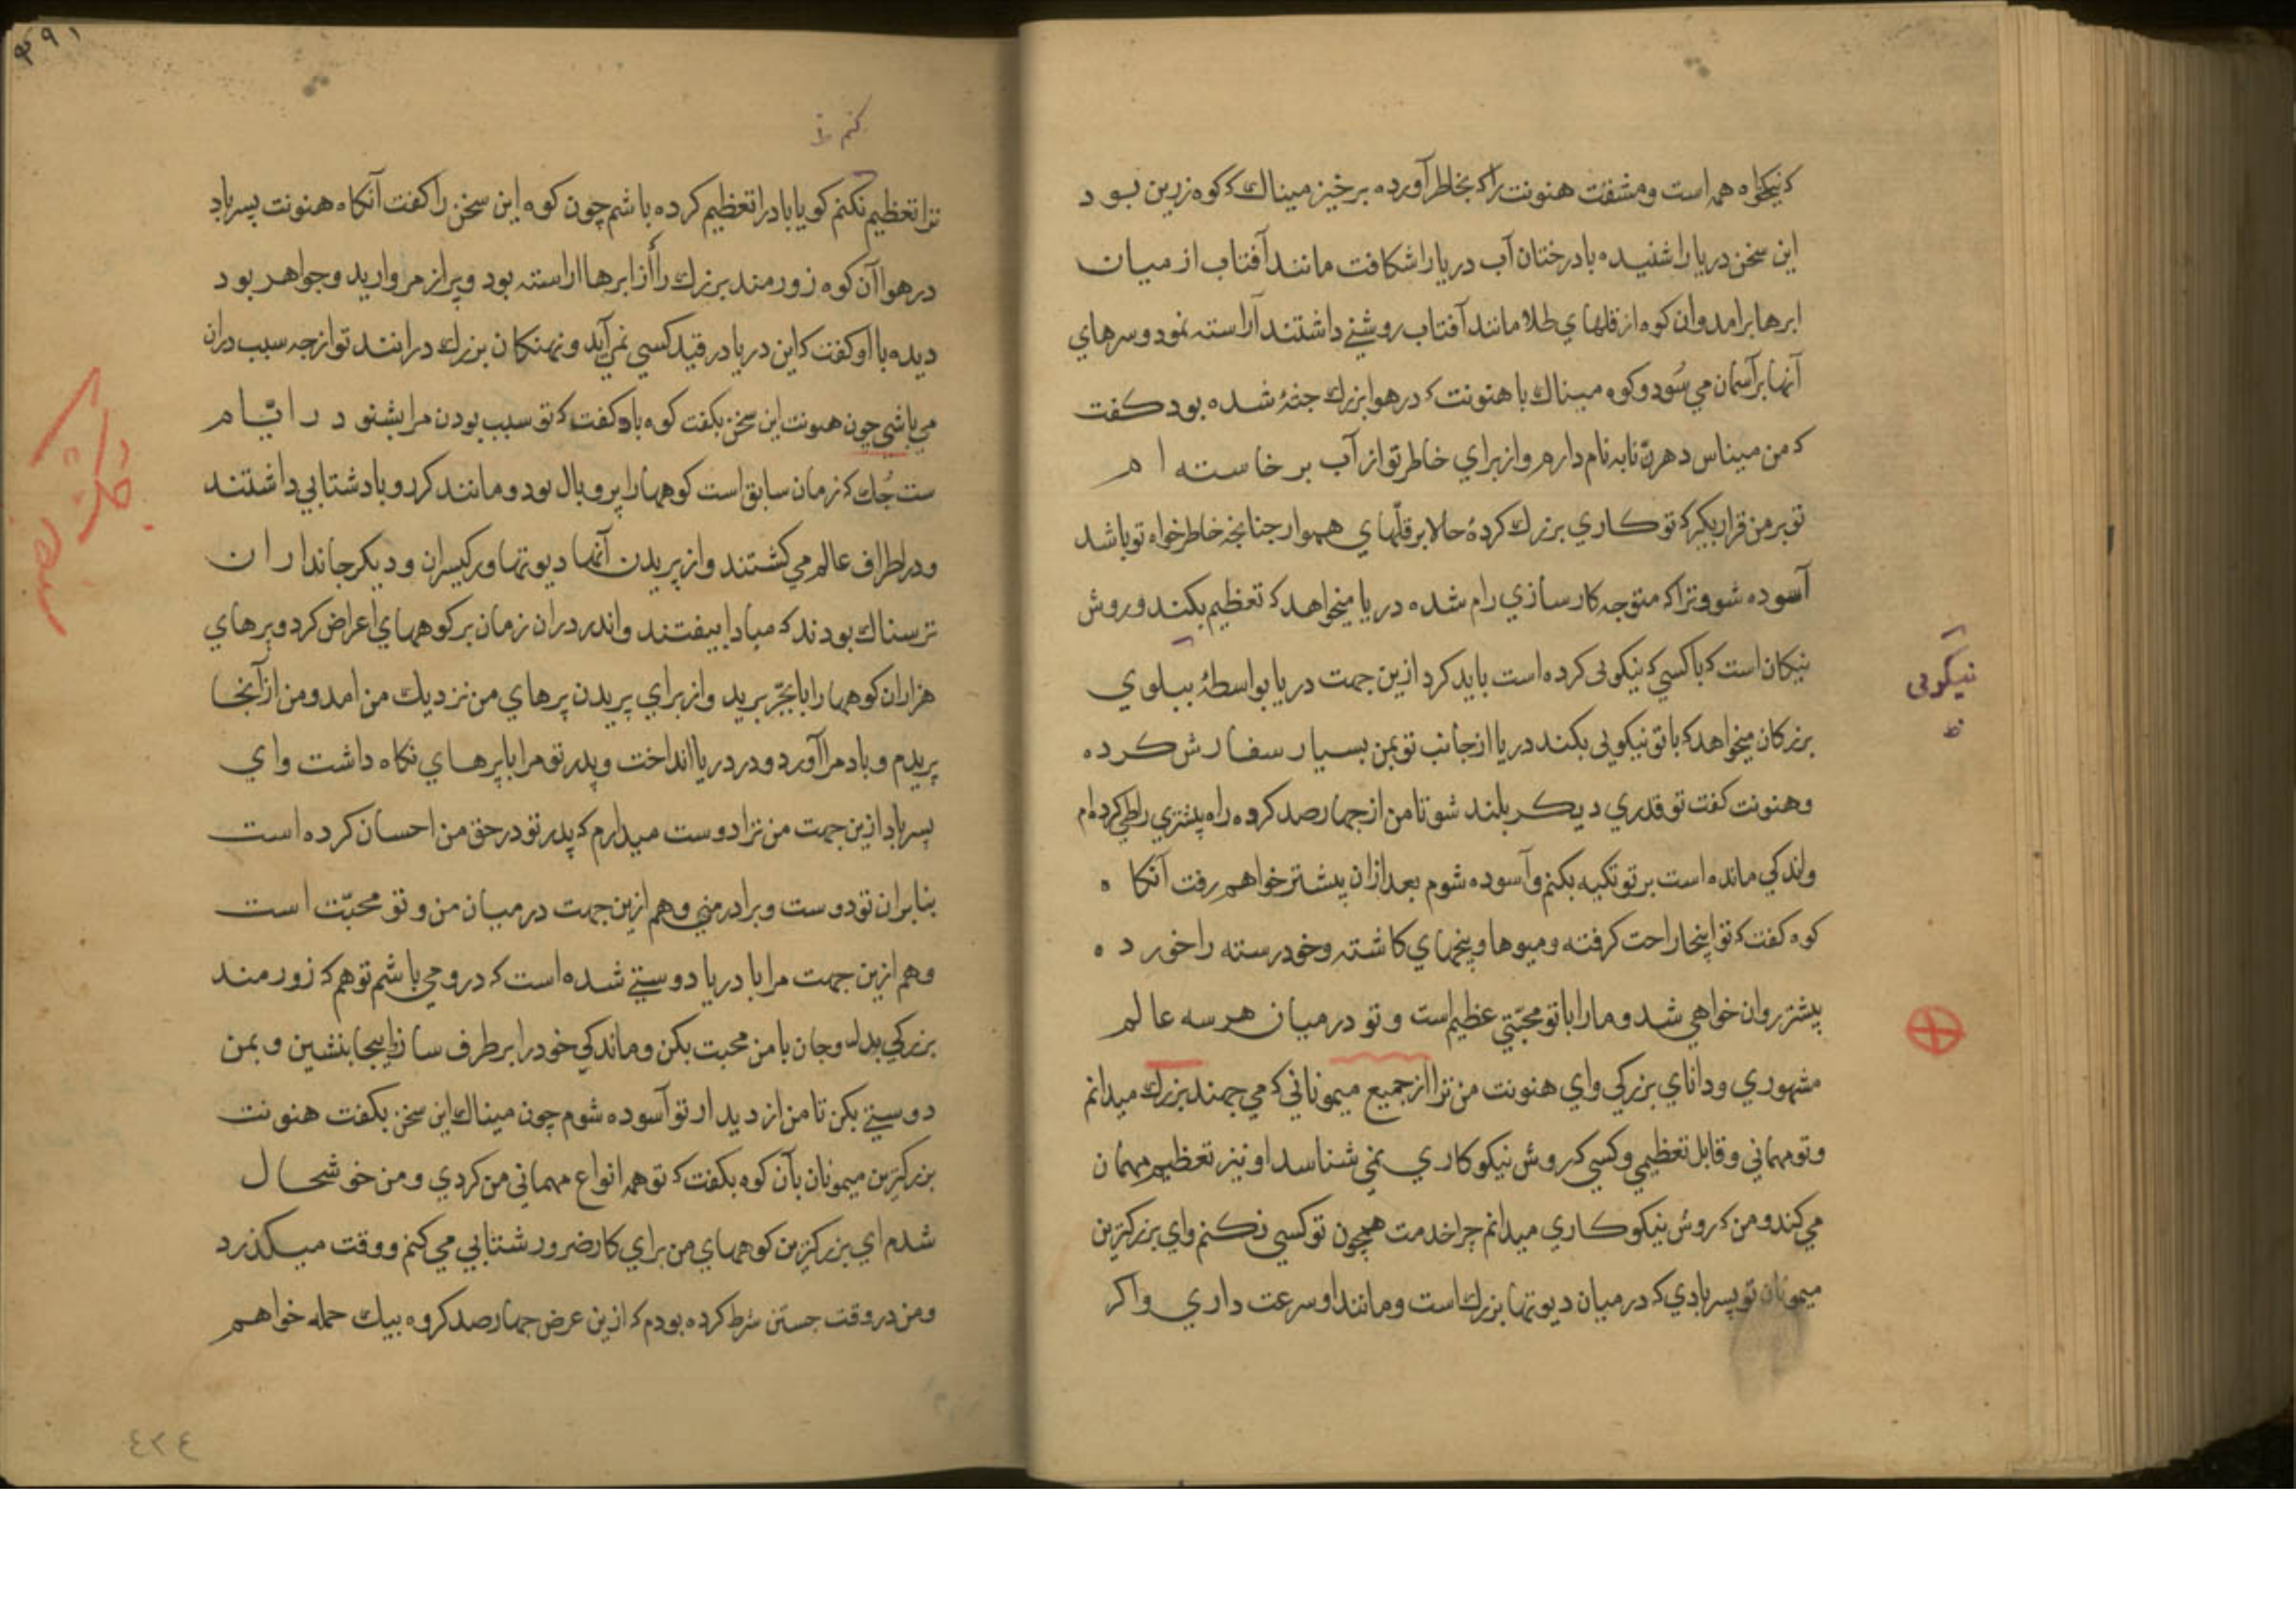 که نیکخواه همه است ومشقت هنونت را که بخاطر آورده برخیز میناک که کوه زرین بود
این سخن دریا را شنیده بادرختان آب دریا را شکافت مانند آفتاب از میان
ابرها برامد وان کوه از قلهای طلا مانند آفتاب روشنی داشتند آراسته نمود وسرهای
آنها بر آسمان می سُود وکوه میناک با هنونت که در هوا بزرک جثهٔ شده بود کفت
که من میناس دهرن نابه نام دارم واز برای خاطر تو از آب بر خاسته ام
تو بر من قرار بکیر که تو کاری بزرک کردهٔ حالا بر قلّهای هموار چنانچه خاطر خواه تو باشد
آسوده شو وترا که متوجه کارسازی رام شده دریا میخواهد که تعظیم بکند وروش
نیکان است که با کسی که نیکوئی کرده است باید کرد ازین جهت دریا بواسطهٔ
بزرکان میخواهد که باتو نیکویی بکند دریا از جانب تو بمن بسیار سفارش کرده
وهنونت کفت تو قدری دیکر بلند شو تا من از چهارصد کروه راه پیشتری را طی کرده ام
واندکی مانده است بر تو تکیه بکنم وآسوده شوم بعد ازان پیشتر خواهم رفت آنکاه
کوه کفت که تو اینجا راحت کرفته ومیوها وبیخهای کاشته وخودرسته را خورده
پیشتر روان خواهی شد ومارا باتو محبّتی عظیم است وتو درمیان هر سه عالم
مشهوری ودانای بزرکی وای هنونت من ترا از جمیع میمونانی که می جهند بزرک میدانم
وتو مهمانی وقابل تعظیمی وکسی که روش نیکوکاری نمی شناسد او نیز تعظیم مهمان
می کند ومن که روش نیکوکاری میدانم چرا خدمت همچون تو کسی نکنم وای بزرکترین
میمونان تو پسر بادی که درمیان دیوتها بزرک است ومانند او سرعت داری واکر
نیکویی
ظ
۳۹۱
کنم ظ
ترا تعظیم نکنم کویا باد را تعظیم کرده باشم چون کوه این سخن را کفت آنکاه هنونت پسر باد
در هوا آن کوه زورمند بزرک را از ابرها اراسته بود وپر از مروارید وجواهر بود
دیده با او کفت که این دریا در قید کسی نمی آید ونهنکان بزرک درانند تو از چه سبب دران
می باشی چون هنونت این سخن بکفت کوه باو کفت که تو سبب بودن مرا بشنو در ایّام
ست جُک که زمان سابق است کوهها را پر وبال بود ومانند کرد وباد شتابی داشتند
ودر اطراف عالم می کشتند واز پریدن آنها دیوتها ورکیسران ودیکر جانداران
ترسناک بودند که مبادا بیفتند واندر دران زمان بر کوههای اعراض کرد وپرهای
هزاران کوهها را بابجّر برید واز برای بریدن پرهای من نزدیک من امد ومن از آنجا
پریدم وباد مرا آورد ودر دریا انداخت وپدر تو مرا با پرهای نکاه داشت وای
پسر باد ازین جهت من ترا دوست میدارم که پدر تو در حق من احسان کرده است
بنابران تو دوست وبرادر منی وهم ازین جهت درمیان من وتو محبّت است
وهم ازین جهت مرا با دریا دوستی شده است که درو می باشم تو هم که زورمند
بزرکی بدل وجان با من محبت بکن وماندکی خود را بر طرف ساز اینجا بنشین وبمن
دوستی بکن تا من از دیدار تو آسوده شوم چون میناک این سخن بکفت هنونت
بزرکترین میمونان بآن کوه بکفت که تو همه انواع مهمانی من کردی ومن خوشحال
شدم ای بزرکترین کوههای من برای کار ضرور شتابی می کنم ووقت میکذرد
ومن در وقت جستن شرط کرده بودم که ازین عرض چهارصد کروه بیک حمله خواهم
٤٢٤